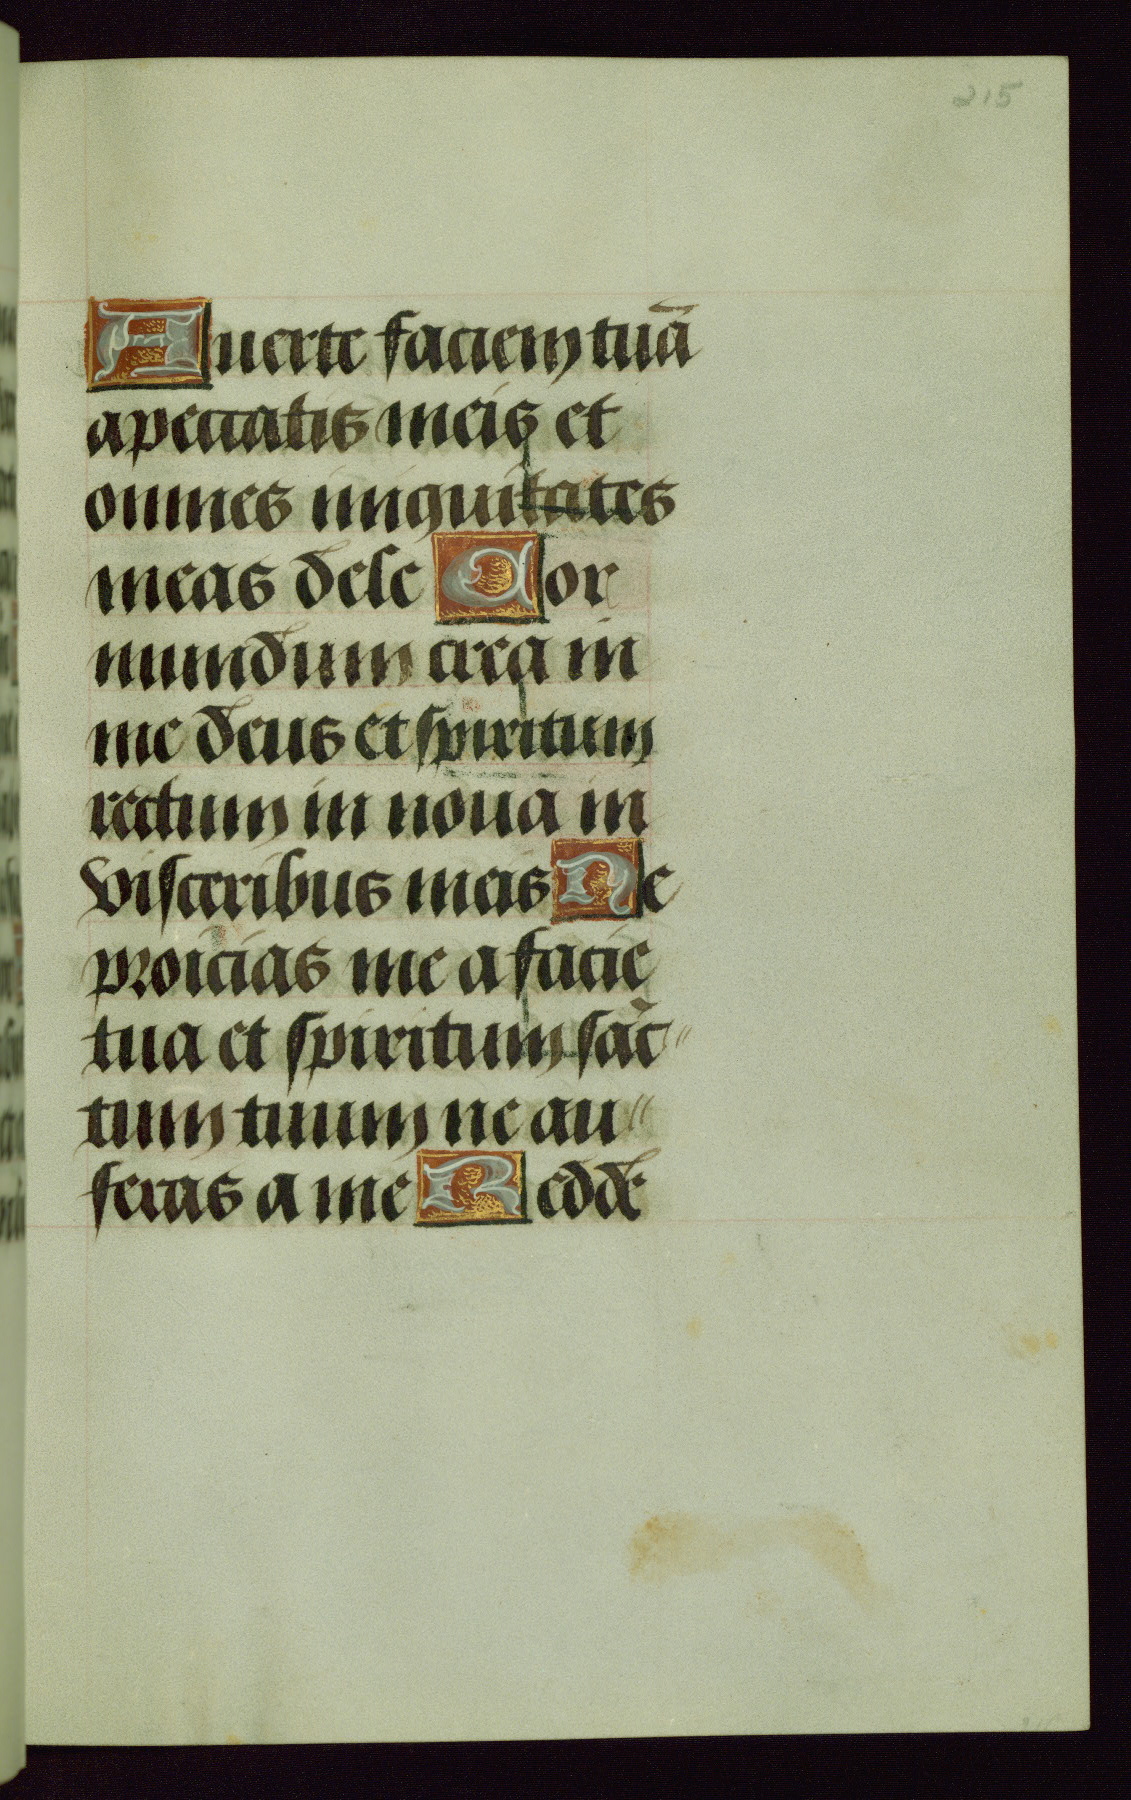 215
Auerte faciem tuā
a peccatis meis et
omnes iniquitates
meas dele Cor
mundum crea in
me deus et spiritum
rectum in noua in
visceribus meis Ne
proicias me a facie
tua et spiritum sāc
tum tuum ne au
feras a me Redde